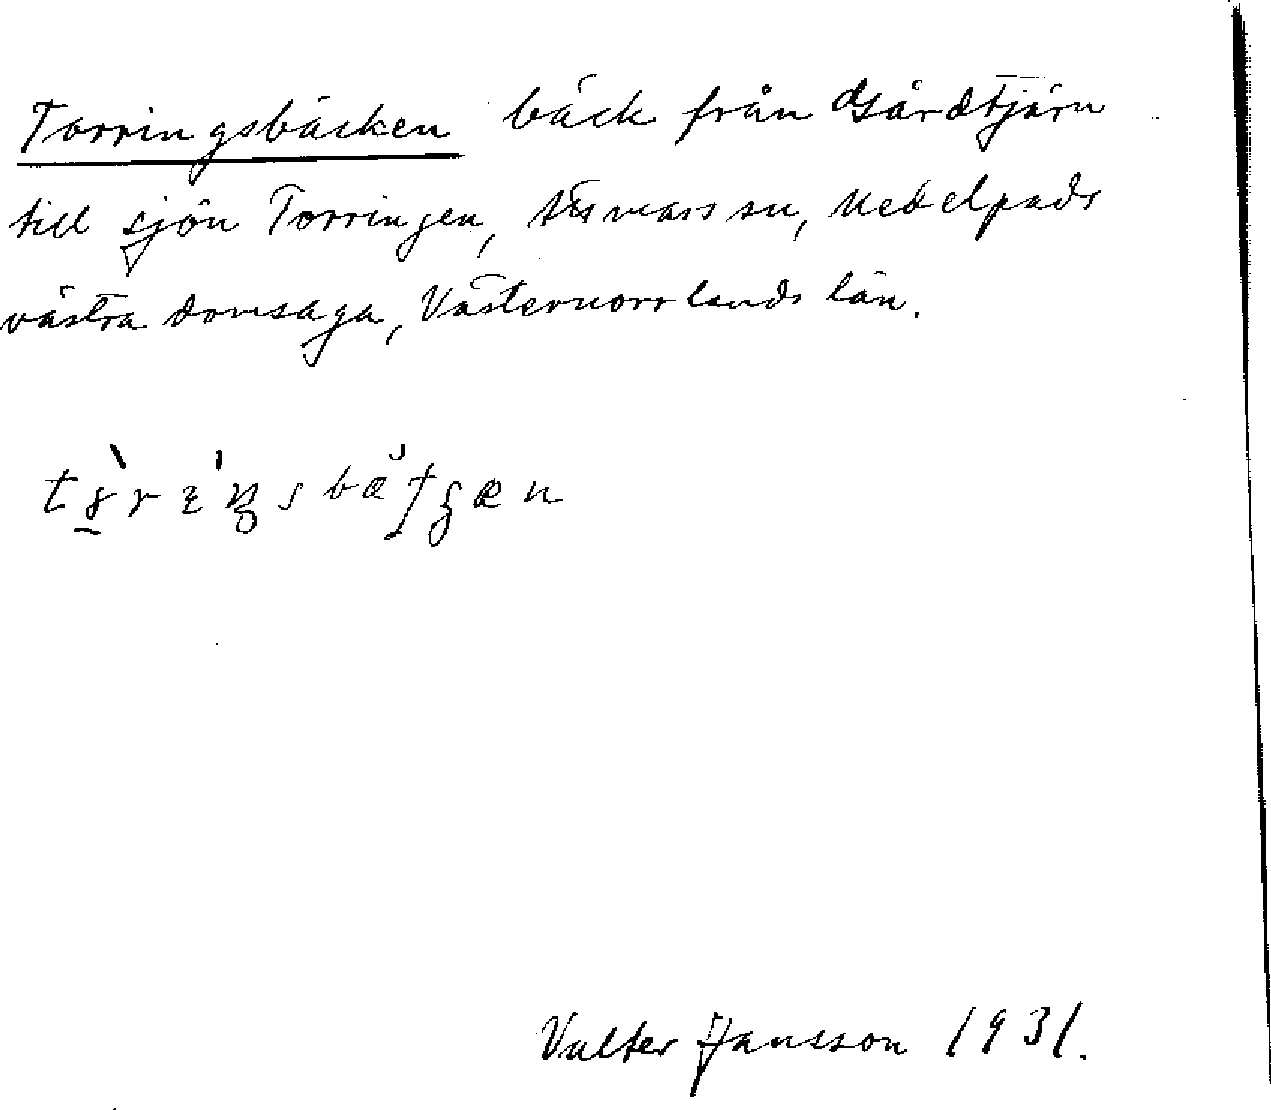 Torringsbäcken bäck från Gårdtjärn
till sjön Torringen, sn, Medelpads
västra domsaga, Västernorrlands län.
Valter Jansson 1931.